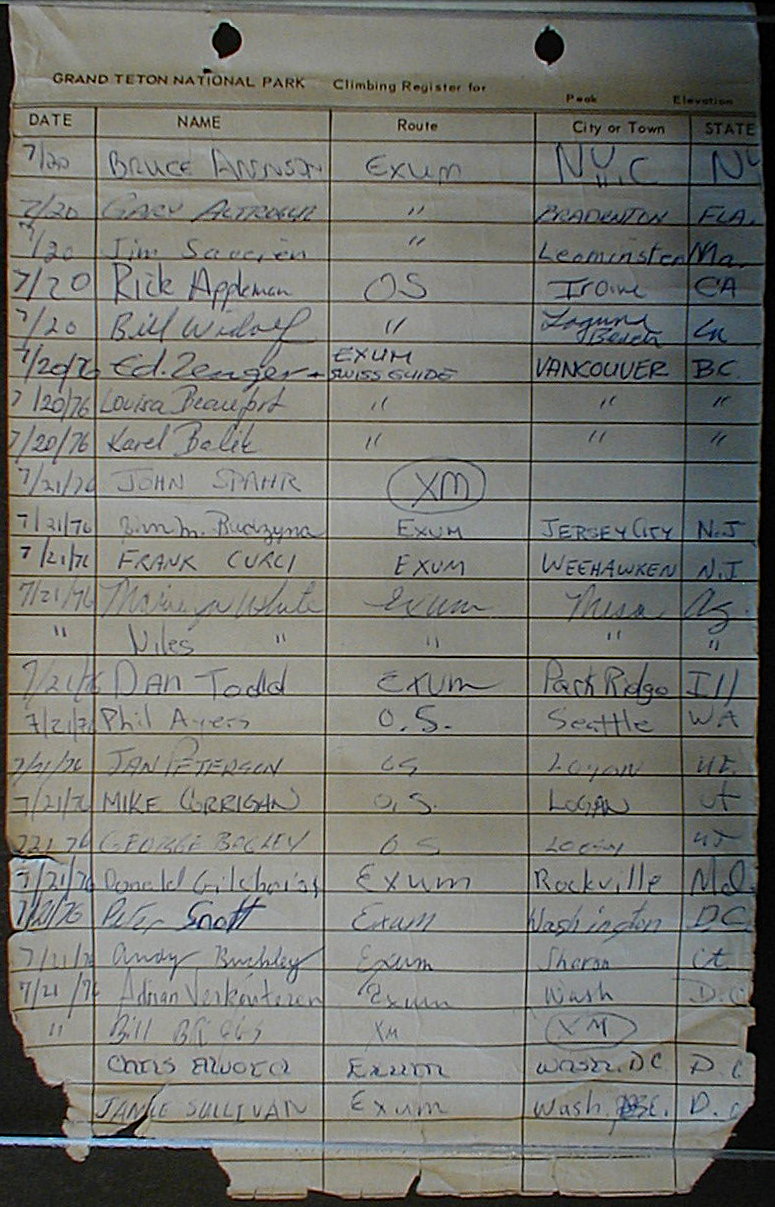 GRAND TETON NATIONAL PARK Climbing Register for
Peak Elevation
DATE NAME Route City or Town STATE
7/20 BRUCE EXUM N.Y.C NY
7/20 GARY " BRADENTON FLA.
7/20 Jim " Leominster Ma.
7/20 Rick Appleman OS Irvine CA
7/20 Bill Widolf " Laguna Beach Ca
7/20/76 Ed. Zenger + EXUM SWISS GUIDE VANCOUVER BC
7/20/76 Louisa Beaufort " " "
7/20/76 Karel Balik " " "
7/21/76 JOHN SPAHR XM
7/21/76 M. Budzyna EXUM JERSEY CITY N.J
7/21/76 FRANK CURCI EXUM WEEHAWKEN N.J
7/21/76 Marilyn White Exum Mesa, Az.
" Niles " " " "
7/21/76 DAN Todd Exum Park Ridge Ill
7/21/76 Phil Ayers O.S. Seattle WA
7/21/76 JAN PETERSON OS LOGAN UT.
7/21/76 MIKE CORRIGAN O.S. LOGAN Ut
7 21 76 GEORGE BAGLEY O.S LOGAN UT
7/21/76 Donald Gilchrist Exum Rockville Md.
7/21/76 Peter Snott Exum Washington D.C.
7/21/76 Andy Buckley Exum Sharon Ct
7/21/76 Adrian Exum Wash D.C.
" Bill BRIGGS XM XM
CHRIS EXUM WASH. DC D.C
JAMIE SULLIVAN Exum Wash. D.C